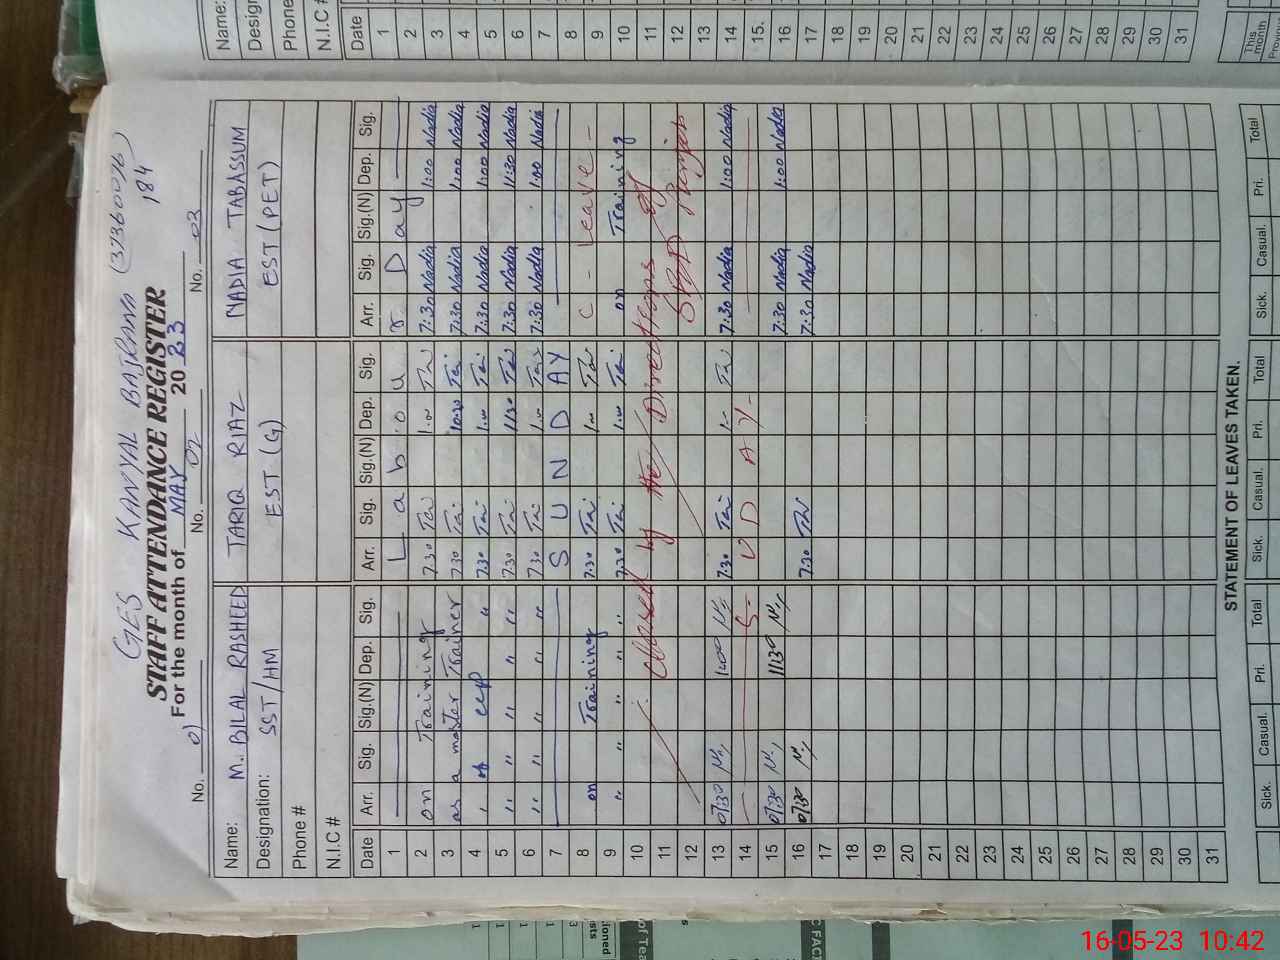 GES KANYAL BAJRANA (37360076)
184
STAFF ATTENDANCE REGISTER
For the month of MAY 2023
No. 01 No. 02 No. 03
Name: M. BILAL RASHEED TARIQ RIAZ NADIA TABASSUM
Designation: SST/HM EST (G) EST (PET)
Phone #
N.I.C #
Date Arr. Sig. Sig.(N) Dep. Sig. Arr. Sig. Sig.(N) Dep. Sig. Arr. Sig. Sig.(N) Dep. Sig.
1 L a b o u r D a y
2 on Training 7:30 1:00 7:30 Nadia 1:00 Nadia
3 as a master Trainer 7:30 Tai 10:30 Tai 7:30 Nadia 1:00 Nadia
4 " of 7:30 Tai 1:00 Tai 7:30 Nadia 1:00 Nadia
5 " " " " " 7:30 Tai 11:30 7:30 Nadia 11:30 Nadia
6 " " " " " 7:30 Tai 1:00 7:30 Nadia 1:00 Nadia
7 S U N D A Y
8 on Training 7:30 Tai 1:00 C - Leave -
9 " " " " " 7:30 Tai 1:00 Tai on Training
10 closed by the Directions of
11
12 Punjab
13 07:30 1:00 7:30 Tai 1:00 7:30 Nadia 1:00 Nadia
14 S U D A Y
15 07:30 11:30 7:30 Nadia 1:00 Nadia
16 07:30 7:30 7:30 Nadia
17
18
19
20
21
22
23
24
25
26
27
28
29
30
31
STATEMENT OF LEAVES TAKEN.
Sick. Casual. Pri. Total Sick. Casual. Pri. Total Sick. Casual. Pri. Total
Name:
Design
Phone
N.I.C #
Date
1
2
3
4
5
6
7
8
9
10
11
12
13
14
15.
16
17
18
19
20
21
22
23
24
25
26
27
28
29
30
31
This month
16-05-23 10:42